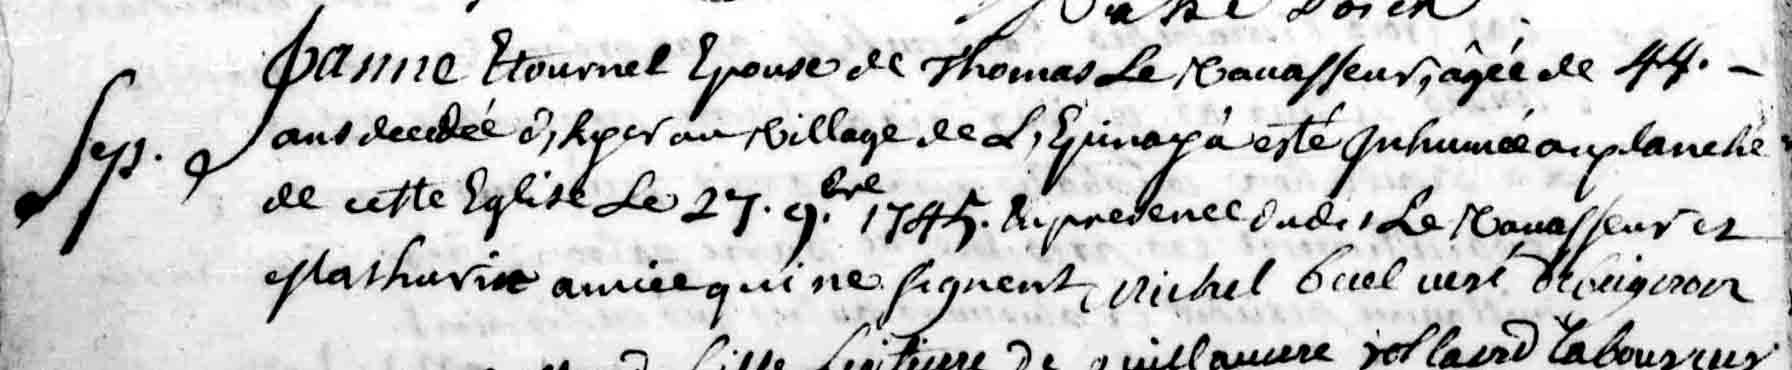 Janne Etournel Epouse de Thomas Le Vavasseur, âgée de 44. -
Sep. ans decedée d'hyer au village de L'Epinay à esté Inhumée au planché
de cette Eglise Le 27. 9.bre 1745. En presence dudit Le Vavasseur et
Mathurin amice qui ne signent, Michel
fille Legitime de guillaume rollard Laboureur